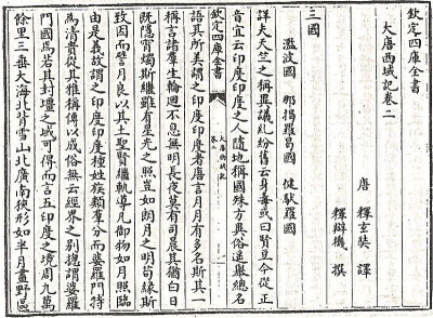 欽定四庫全書
大唐西域記卷二
唐 釋玄奘 譯
釋辯機 撰
三國
濫波國 那揭羅曷國 健馱羅國
詳夫天竺之稱異議糾紛舊云身毒或曰賢豆今從正
音宜云印度印度之人隨地稱國殊方異俗遥舉總名
欽定四庫全書
大唐西域記
卷二
語其所美謂之印度印度者唐言月月有多名斯其一
稱言諸羣生輪迴不息無明長夜莫有司晨其猶白日
既隱宵燭斯繼雖有星光之照豈如朗月之明苟緣斯
致因而譬月良以其土聖賢繼軌導凡御物如月照臨
由是義故謂之印度印度種姓族類羣分而婆羅門特
為清貴從其雅稱傳以成俗無云經界之别總謂婆羅
門國焉若其封疆之域可得而言五印度之境周九萬
餘里三垂大海北背雪山北廣南狹形如半月畫野區